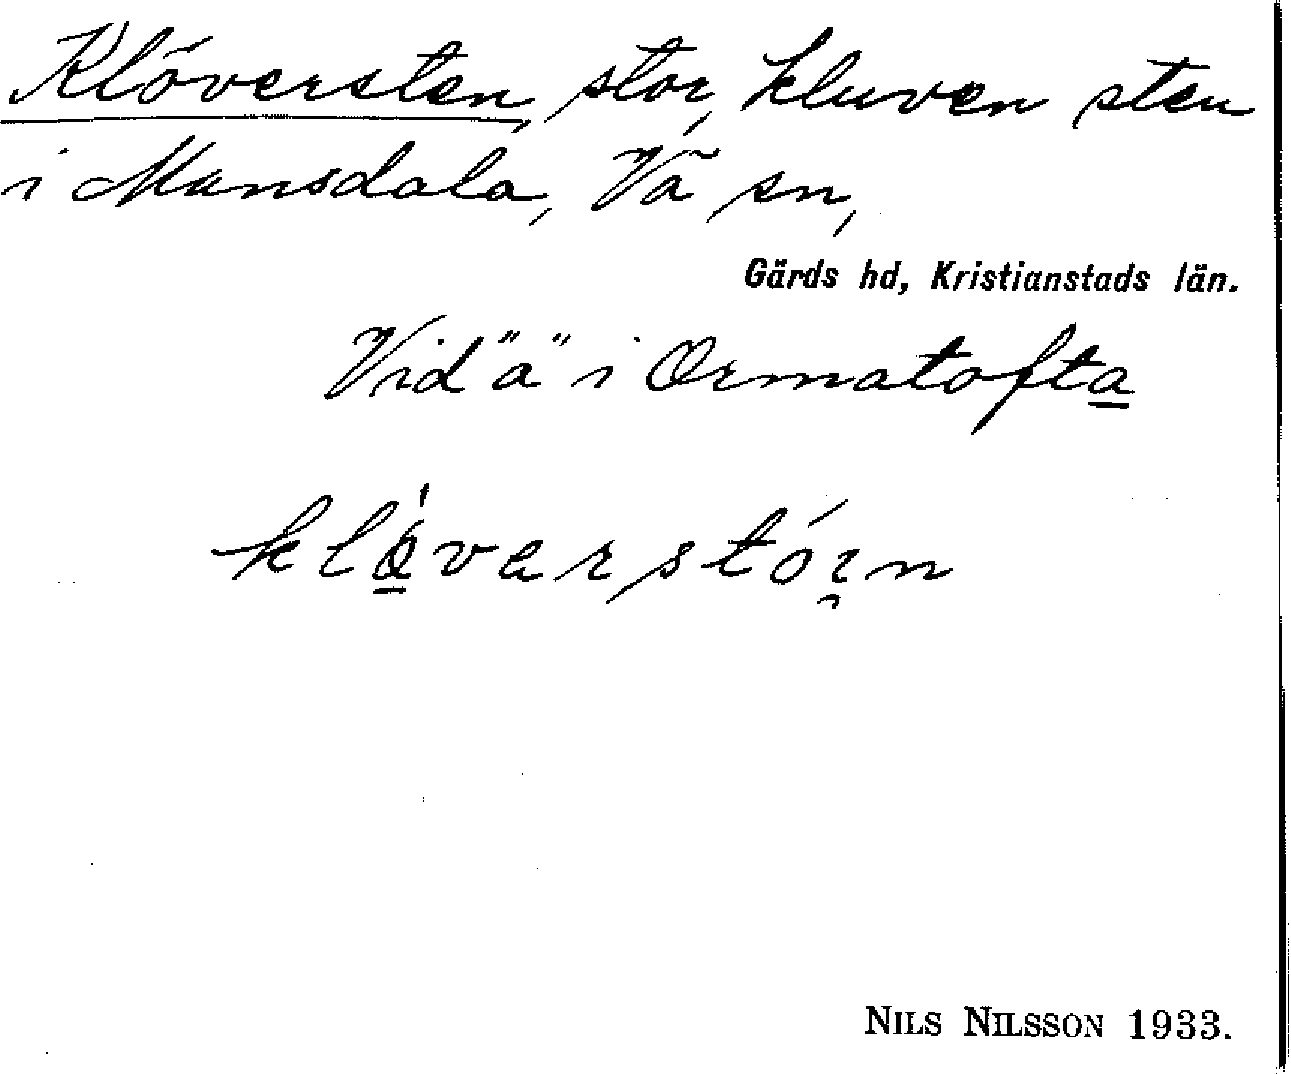 Klöversten, stor, kluven sten
i Mansdala, Vä sn,
Gärds hd, Kristianstads län.
Vid "ä" i Ormatofta
klǿ̱varstói̯n
NILS NILSSON 1933.